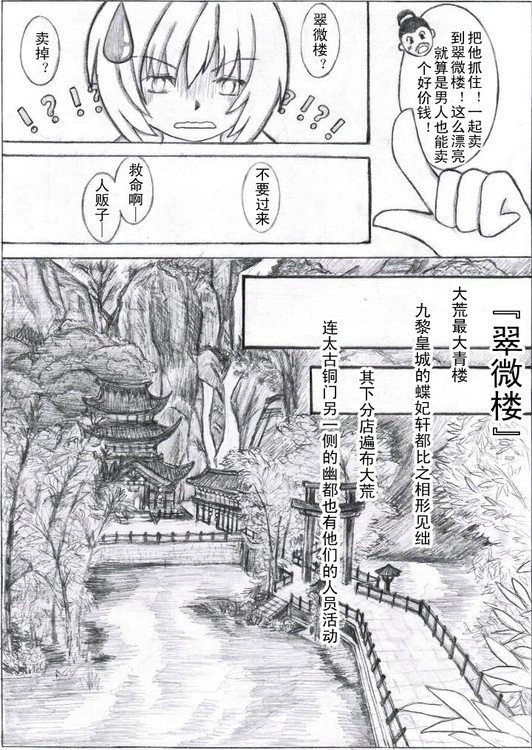 把他抓住！一起卖
到翠微楼！这么漂亮
就算是男人也能卖
个好价钱！
翠微楼？
卖掉？
!?!?
!?!?
不要过来
救命啊—
人贩子—
『翠微楼』
大荒最大青楼
九黎皇城的蝶妃轩都比之相形见绌
其下分店遍布大荒
连太古铜门另一侧的幽都也有他们的人员活动